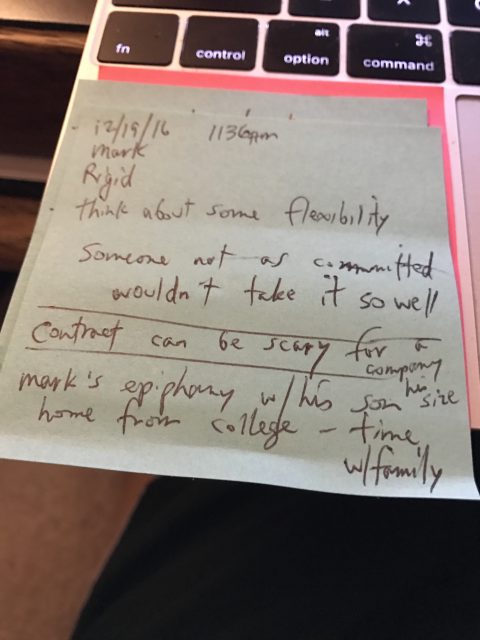 fn
control
alt
option
⌘
command
12/19/16 1136am
mark
Rigid
think about some flexibility
Someone not as committed
wouldn't take it so well
Contract can be scary for a
company
his size
mark's epiphany w/his son
home from college - time
w/family